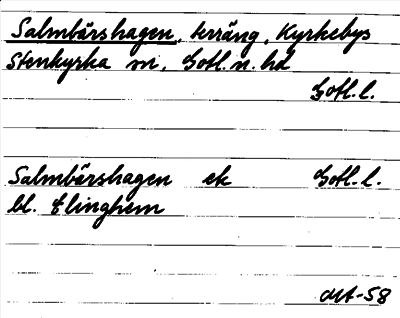 Salmbärshagen, terräng, Kyrkebys
Stenkyrka sn, Gotl. n. hd
Gotl. l.
Salmbärshagen ek Gotl. l.
bl. Elinghem